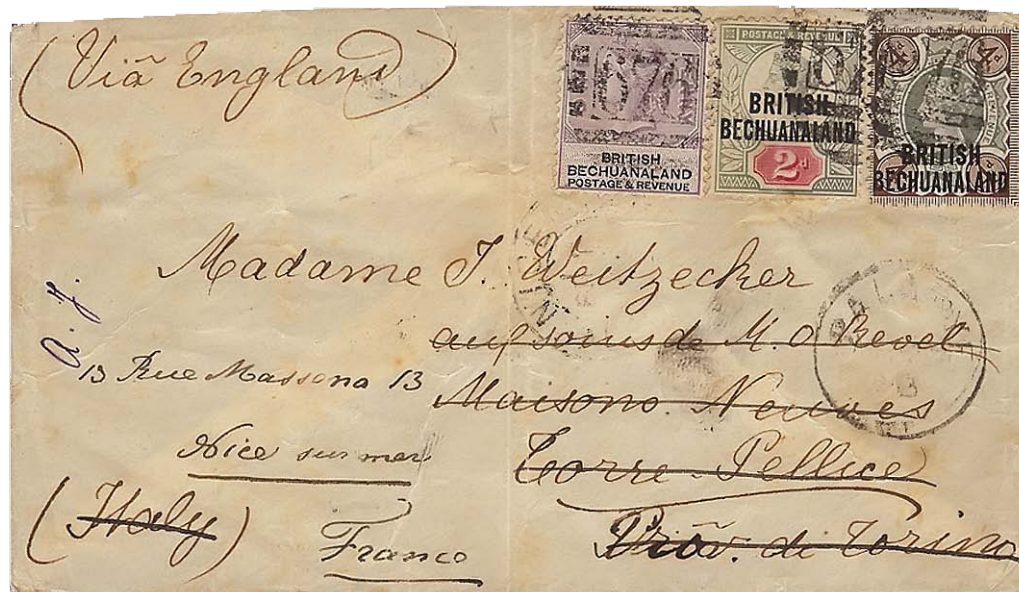 (Viâ England)
BRITISH
BECHUANALAND
POSTAGE & REVENUE
POSTAGE & REVENUE
BRITISH
BECHUANALAND
2d
4d
4d
BRITISH
BECHUANALAND
678
Madame J. Weitzecker
aux soins de M. O Revel
Maisons Neuves
Torre Pellice
Prov. di Torino
(Italy)
a. J.
13 Rue Massena 13
Nice sur mer
France
PALA